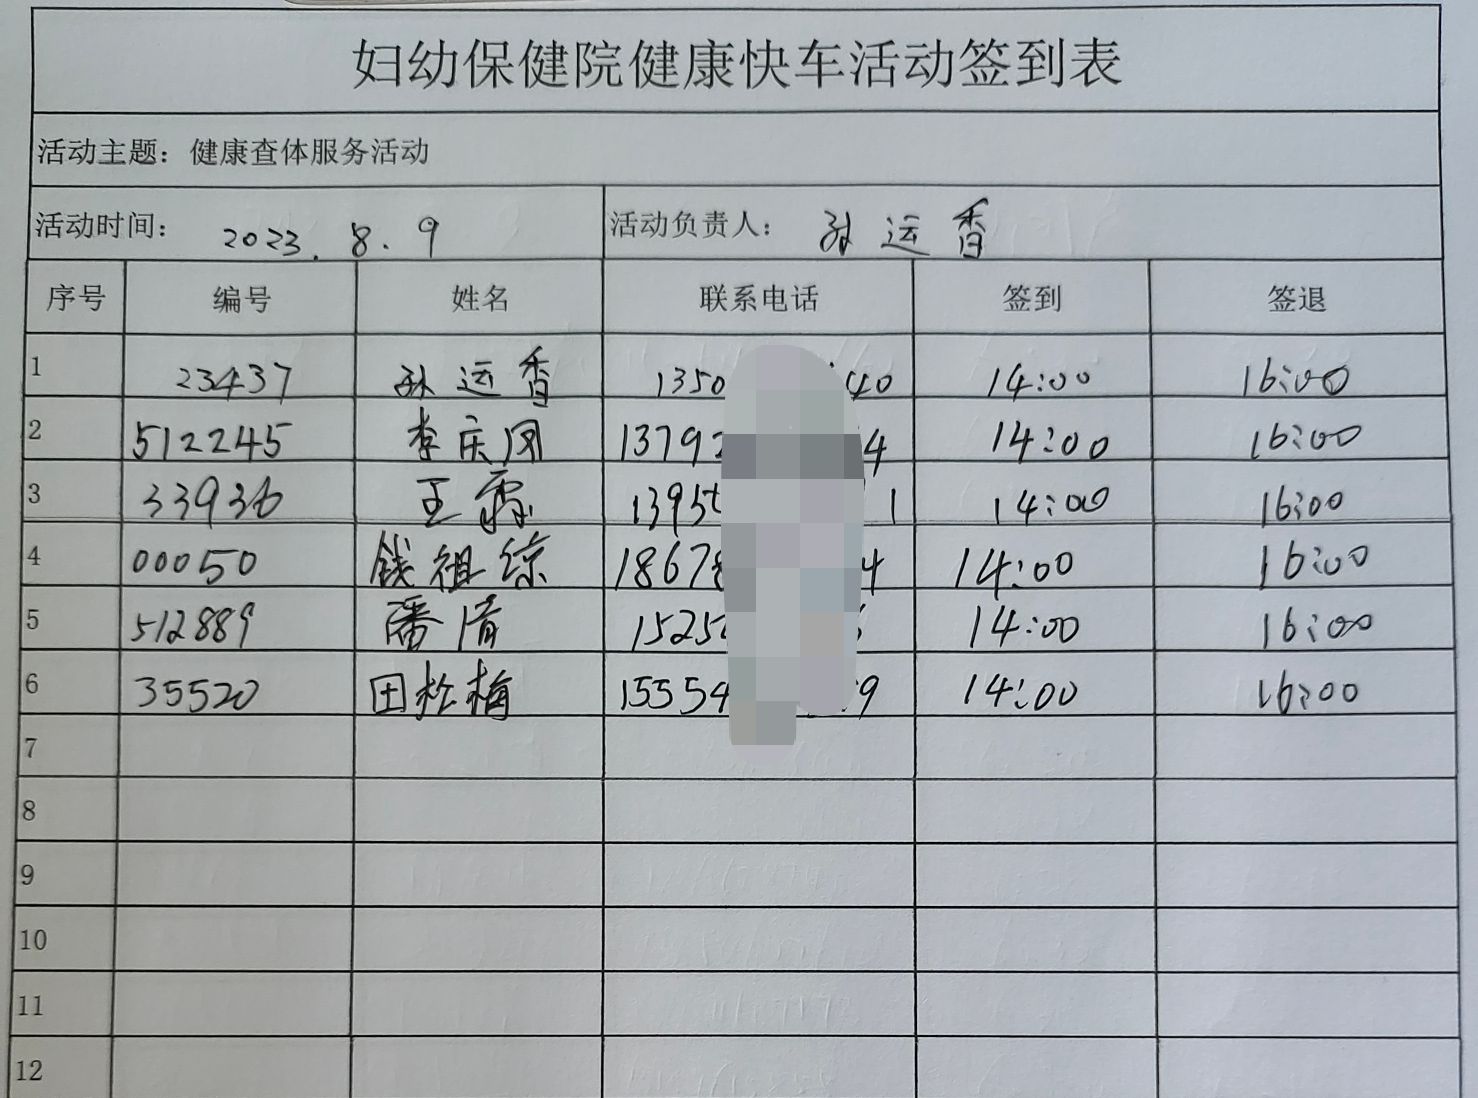 妇幼保健院健康快车活动签到表
活动主题：健康查体服务活动
活动时间： 2023.8.9 活动负责人： 孙运香
序号 编号 姓名 联系电话 签到 签退
1 23437 孙运香 1350 40 14:00 16:00
2 512245 李庆凤 1379 4 14:00 16:00
3 33936 王霞 1395 1 14:00 16:00
4 00050 钱祖综 1867 4 14:00 16:00
5 512889 潘清 1525 14:00 16:00
6 35520 田松梅 15554 9 14:00 16:00
7
8
9
10
11
12